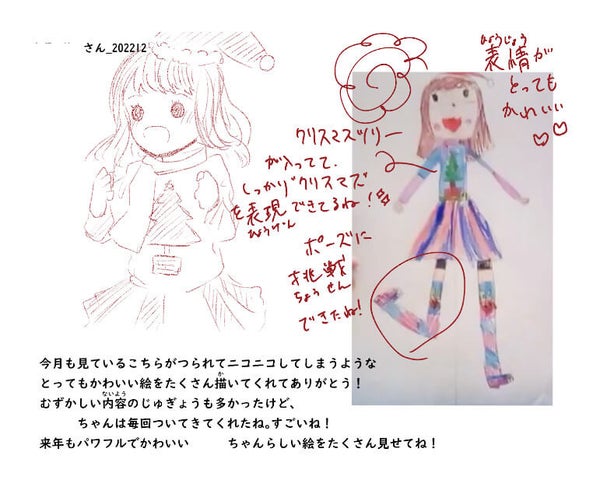 さん_202212
表情が
ひょうじょう
とっても
かわいい
クリスマスツリー
が入ってて、
しっかりクリスマス
を表現できてるね！
ひょうげん
ポーズに
挑戦
ちょうせん
できたね!
今月も見ているこちらがつられてニコニコしてしまうような
とってもかわいい絵をたくさん描いてくれてありがとう！
か
むずかしい内容のじゅぎょうも多かったけど、
ないよう
ちゃんは毎回ついてきてくれたね。すごいね！
来年もパワフルでかわいい ちゃんらしい絵をたくさん見せてね！